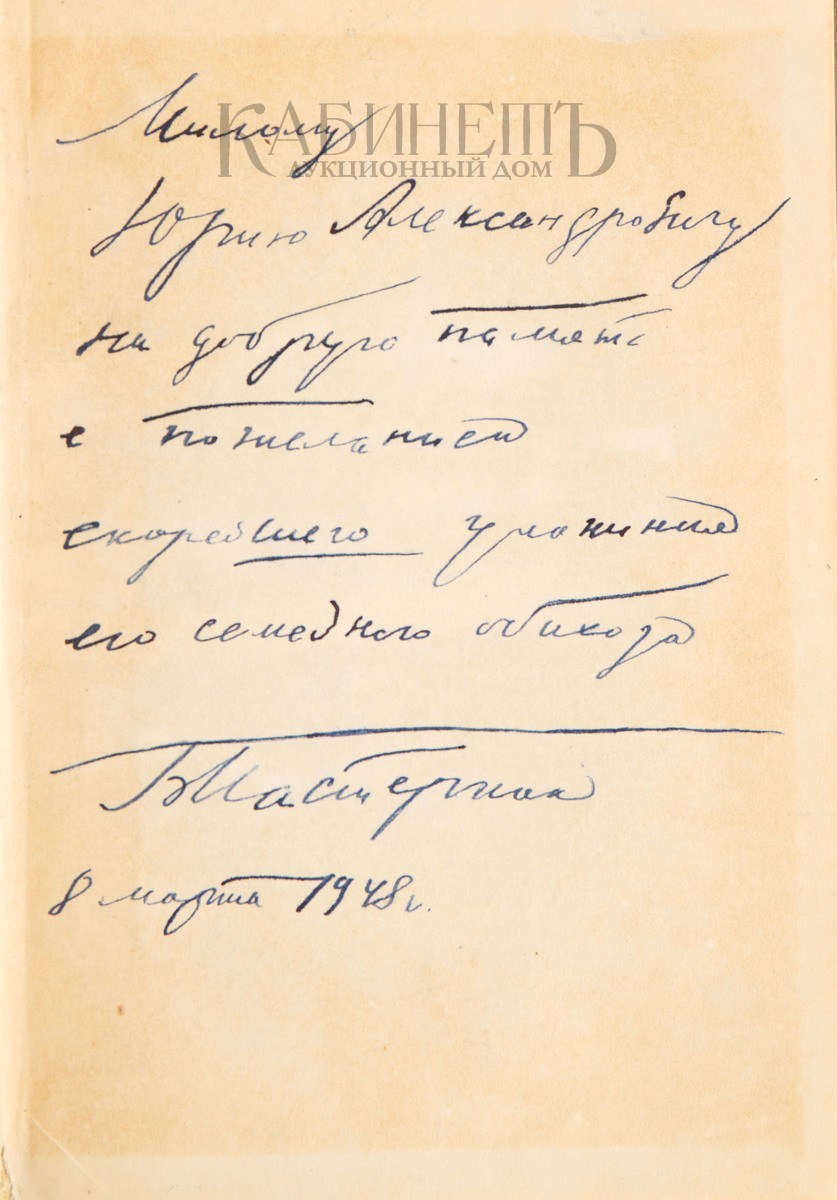 КАБИНЕТЪ
АУКЦИОННЫЙ ДОМ
Милому
Юрию Александровичу
на добрую память
с пожеланием
скорейшего
его семейного обихода
БПастернак
8 марта 1948 г.